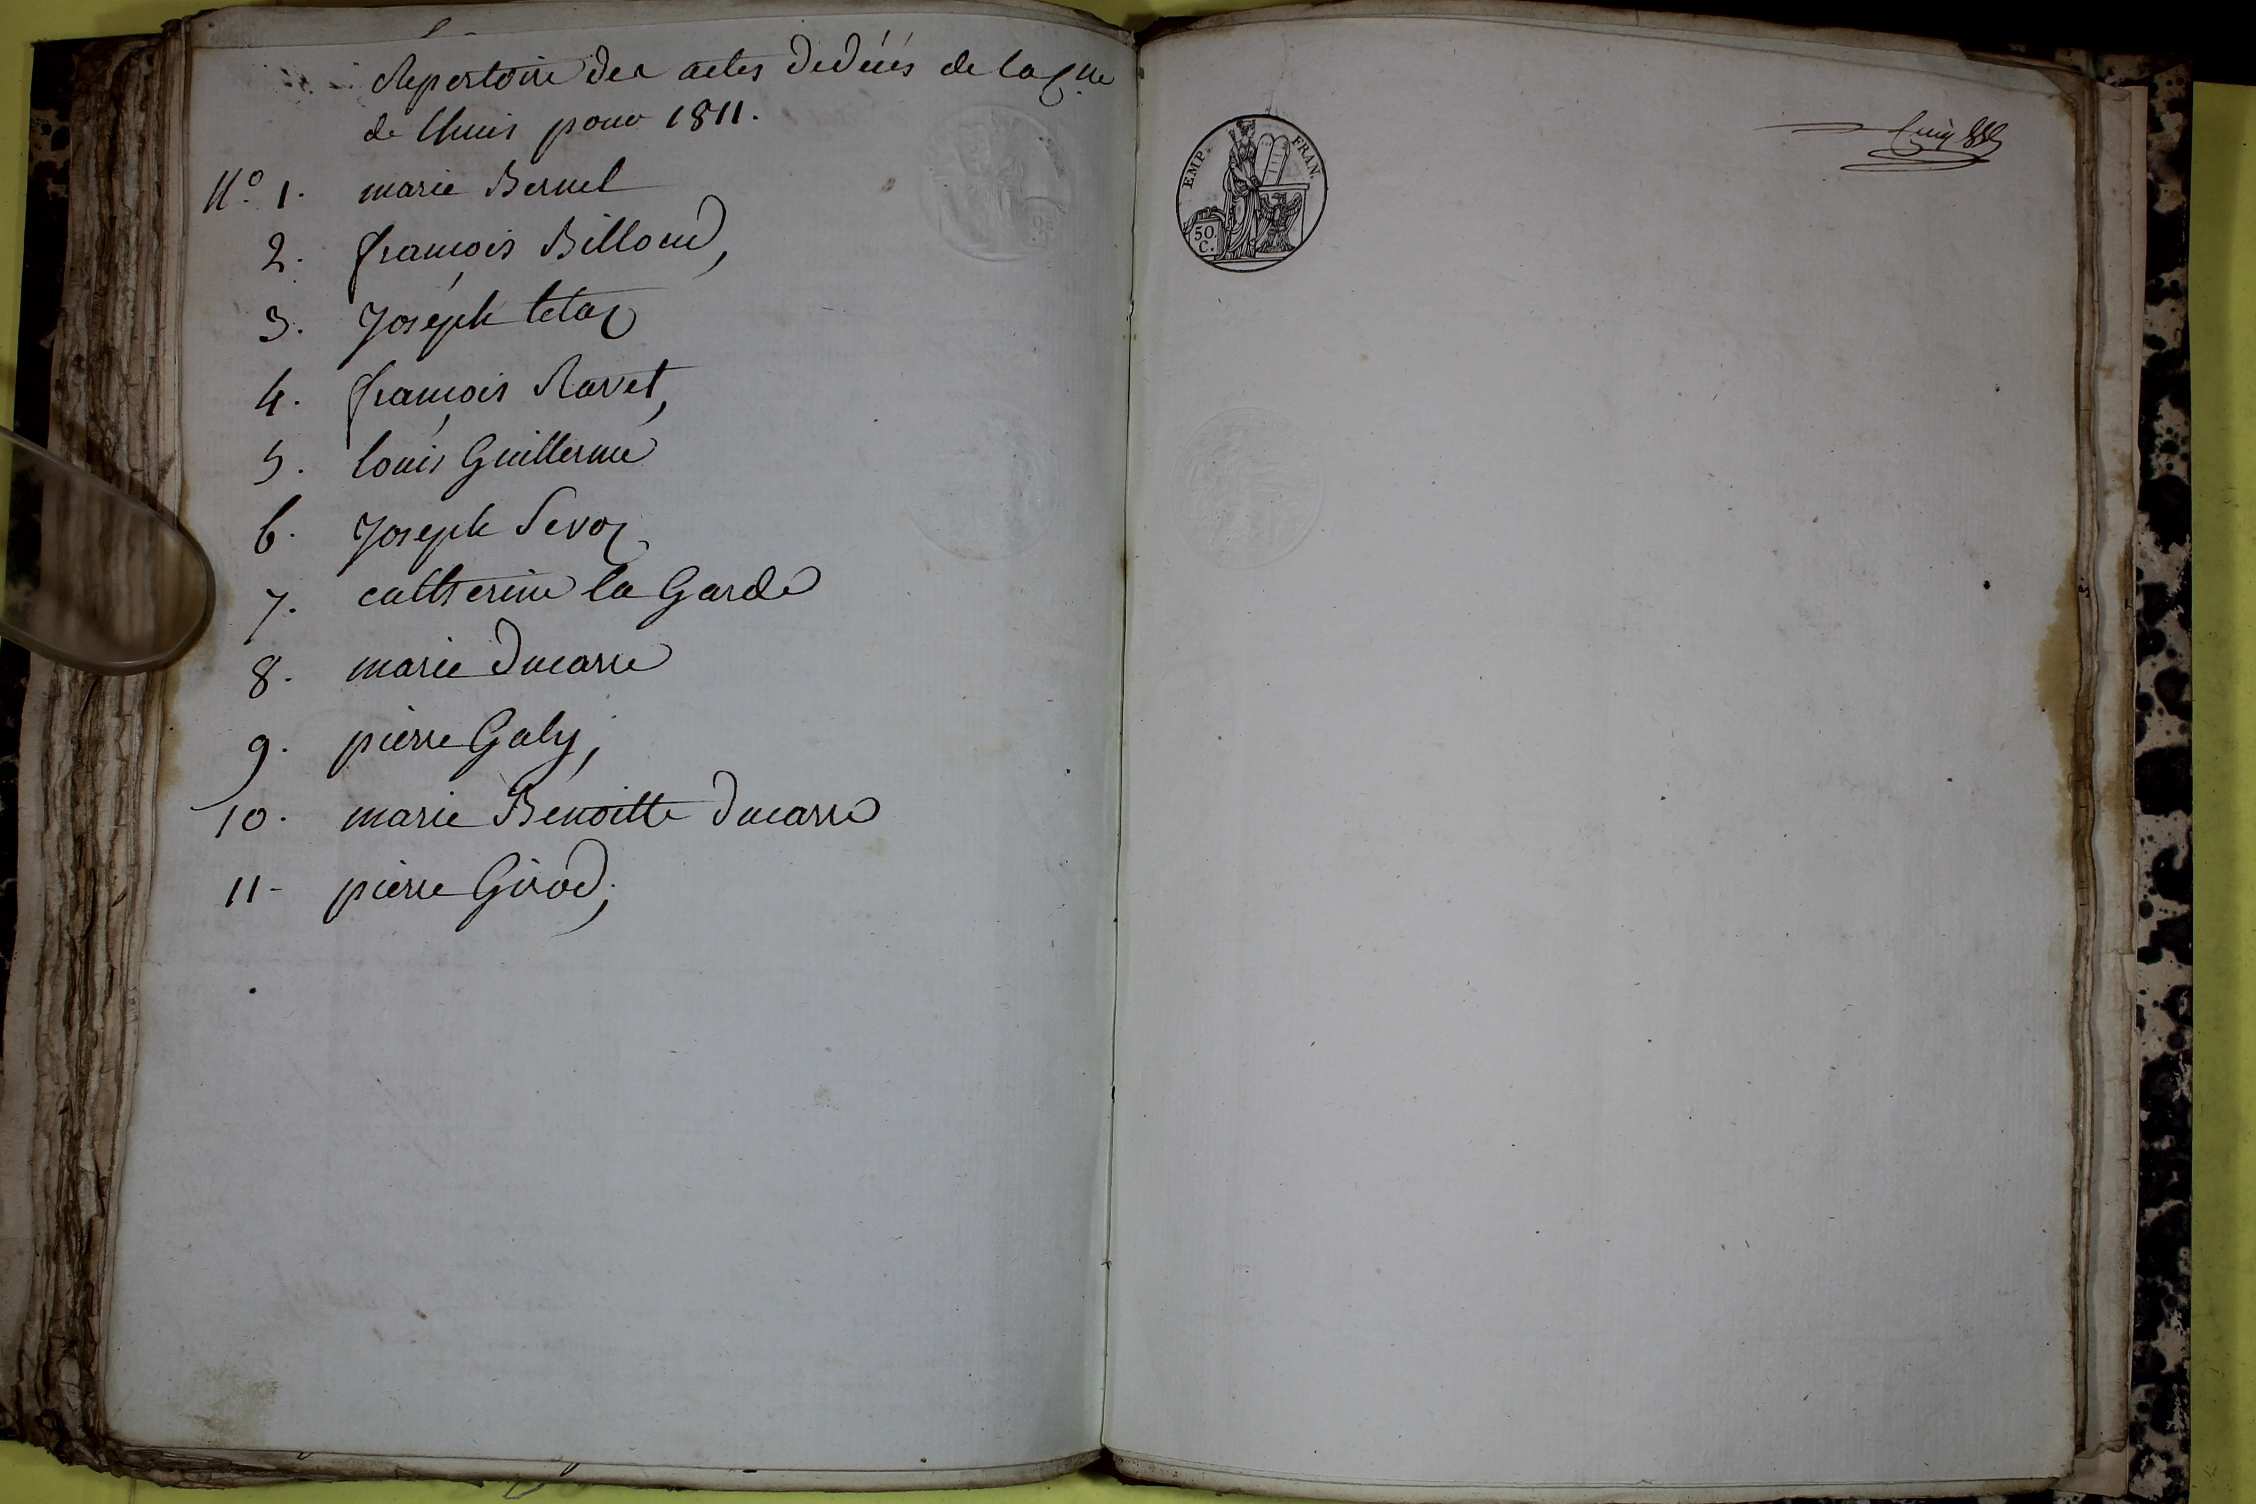 Repertoire des actes dedécés de la Cne
de lhuis pour 1811.
No. 1. marie Bernel
2. françois Billoud,
3. Joseph tetaz
4. françois Ravet,
5. louis Guillermé
6. Joseph Sevoz
7. catherine la Garde
8. marie ducarre
9. pierre Galy,
10. marie Benoitte ducarre
11- pierre Girod,
EMP. FRAN.
50.
C.